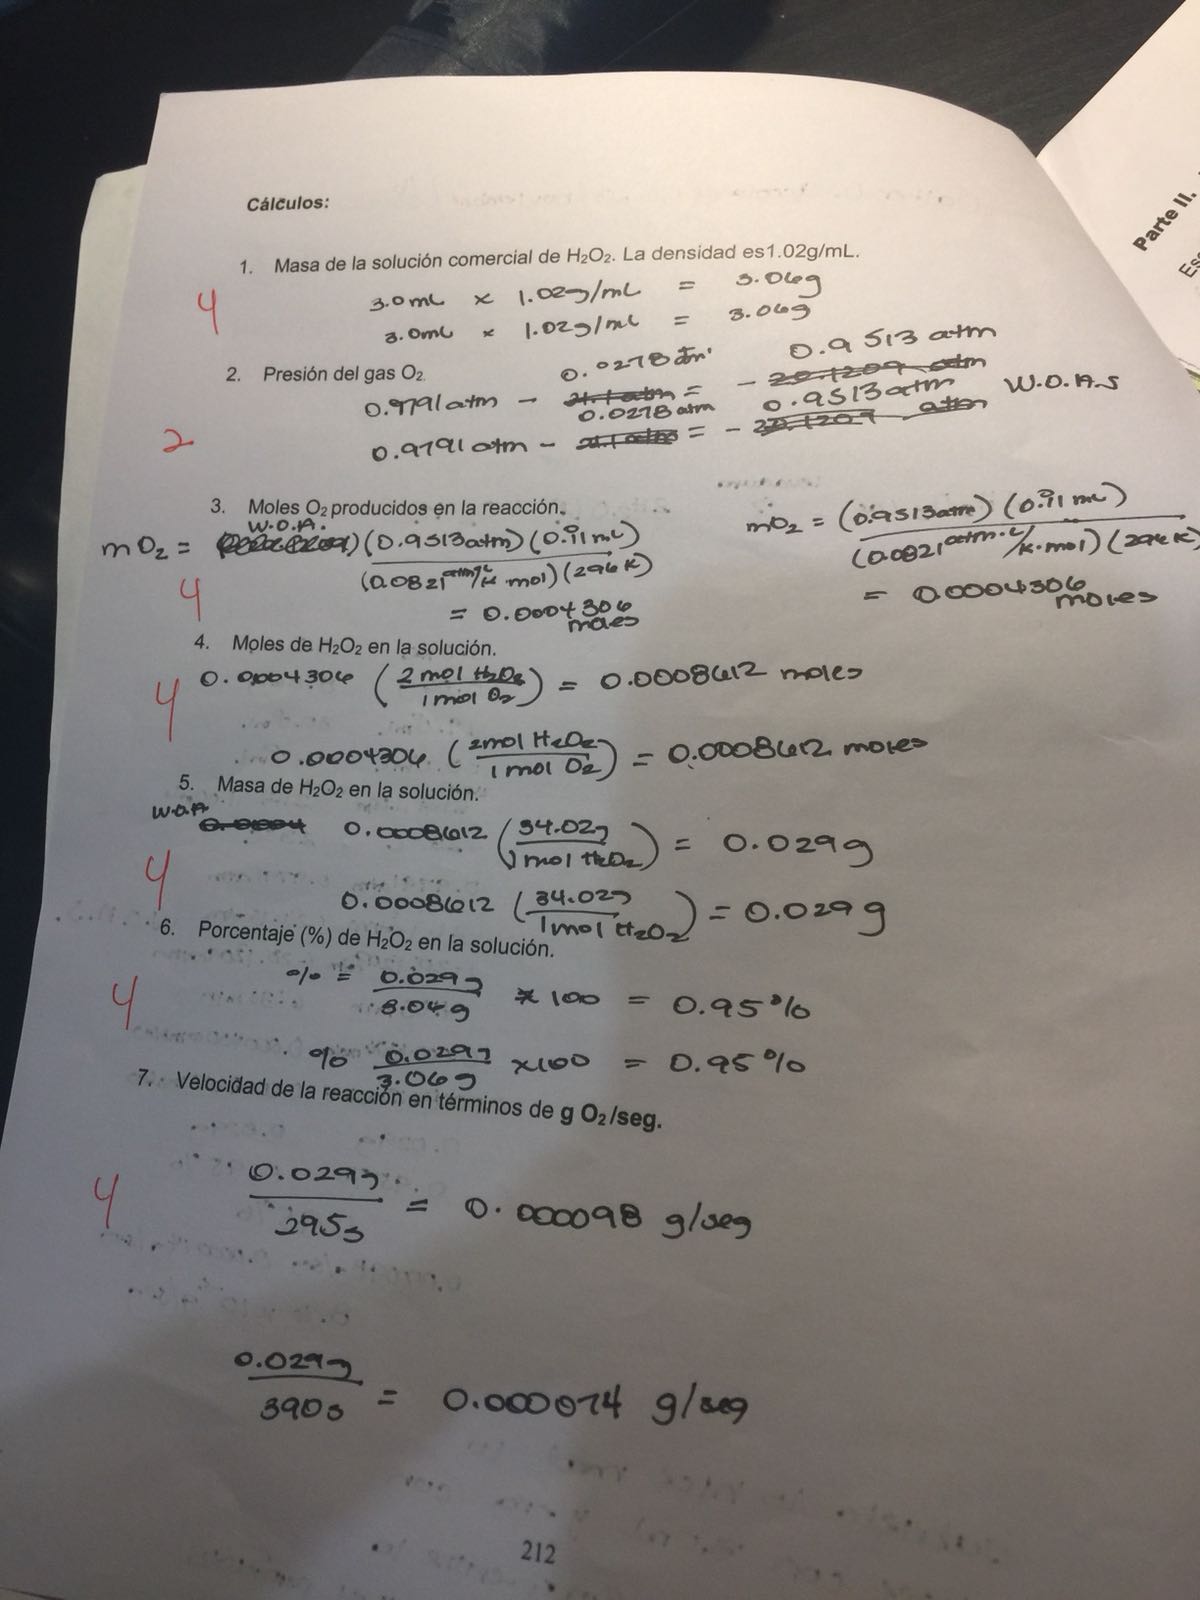 Cálculos:
1. Masa de la solución comercial de H₂O₂. La densidad es1.02g/mL.
4
3.0mL x 1.02g/mL = 3.06g
3.0mL x 1.02g/mL = 3.06g
2. Presión del gas O₂.
0.0278 atm 0.9513 atm
0.9791 atm - 21.1 atm = - 20.1209 atm
0.0278 atm 0.9513 atm W.O.A.S
2
0.9791 atm - 21.1 atm = - 20.1209 atm
3. Moles O₂ producidos en la reacción.
W.O.A.
mO₂ = (0.9513atm) (0.11 mL)
(0.0821 atm·L/K·mol) (296 K)
= 0.0004306 moles
mO₂ = (0.9513atm) (0.11 mL)
(0.0821 atm·L/K·mol) (296 K)
= 0.0004306 moles
4
4. Moles de H₂O₂ en la solución.
4
0.0004306 (2 mol H₂O₂ / 1 mol O₂) = 0.0008612 moles
0.0004306 (2mol H₂O₂ / 1 mol O₂) = 0.0008612 moles
5. Masa de H₂O₂ en la solución.
W.O.A
0.0004 0.0008612 (34.02g / 1 mol H₂O₂) = 0.029g
4
0.0008612 (34.02g / 1mol H₂O₂) = 0.029g
6. Porcentaje (%) de H₂O₂ en la solución.
4
% = 0.029g / 3.06g x 100 = 0.95%
% 0.029g / 3.06g x100 = 0.95%
7. Velocidad de la reacción en términos de g O₂/seg.
4
0.029g / 295s = 0.000098 g/seg
0.029g / 390s = 0.000074 g/seg
212
Parte II.